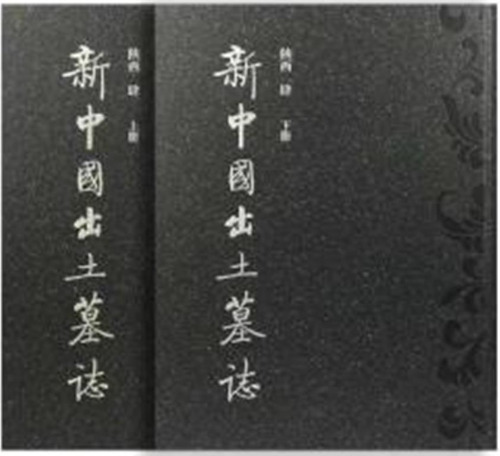 陝西 肆 上冊
新中國出土墓誌
陝西 肆 下冊
新中國出土墓誌